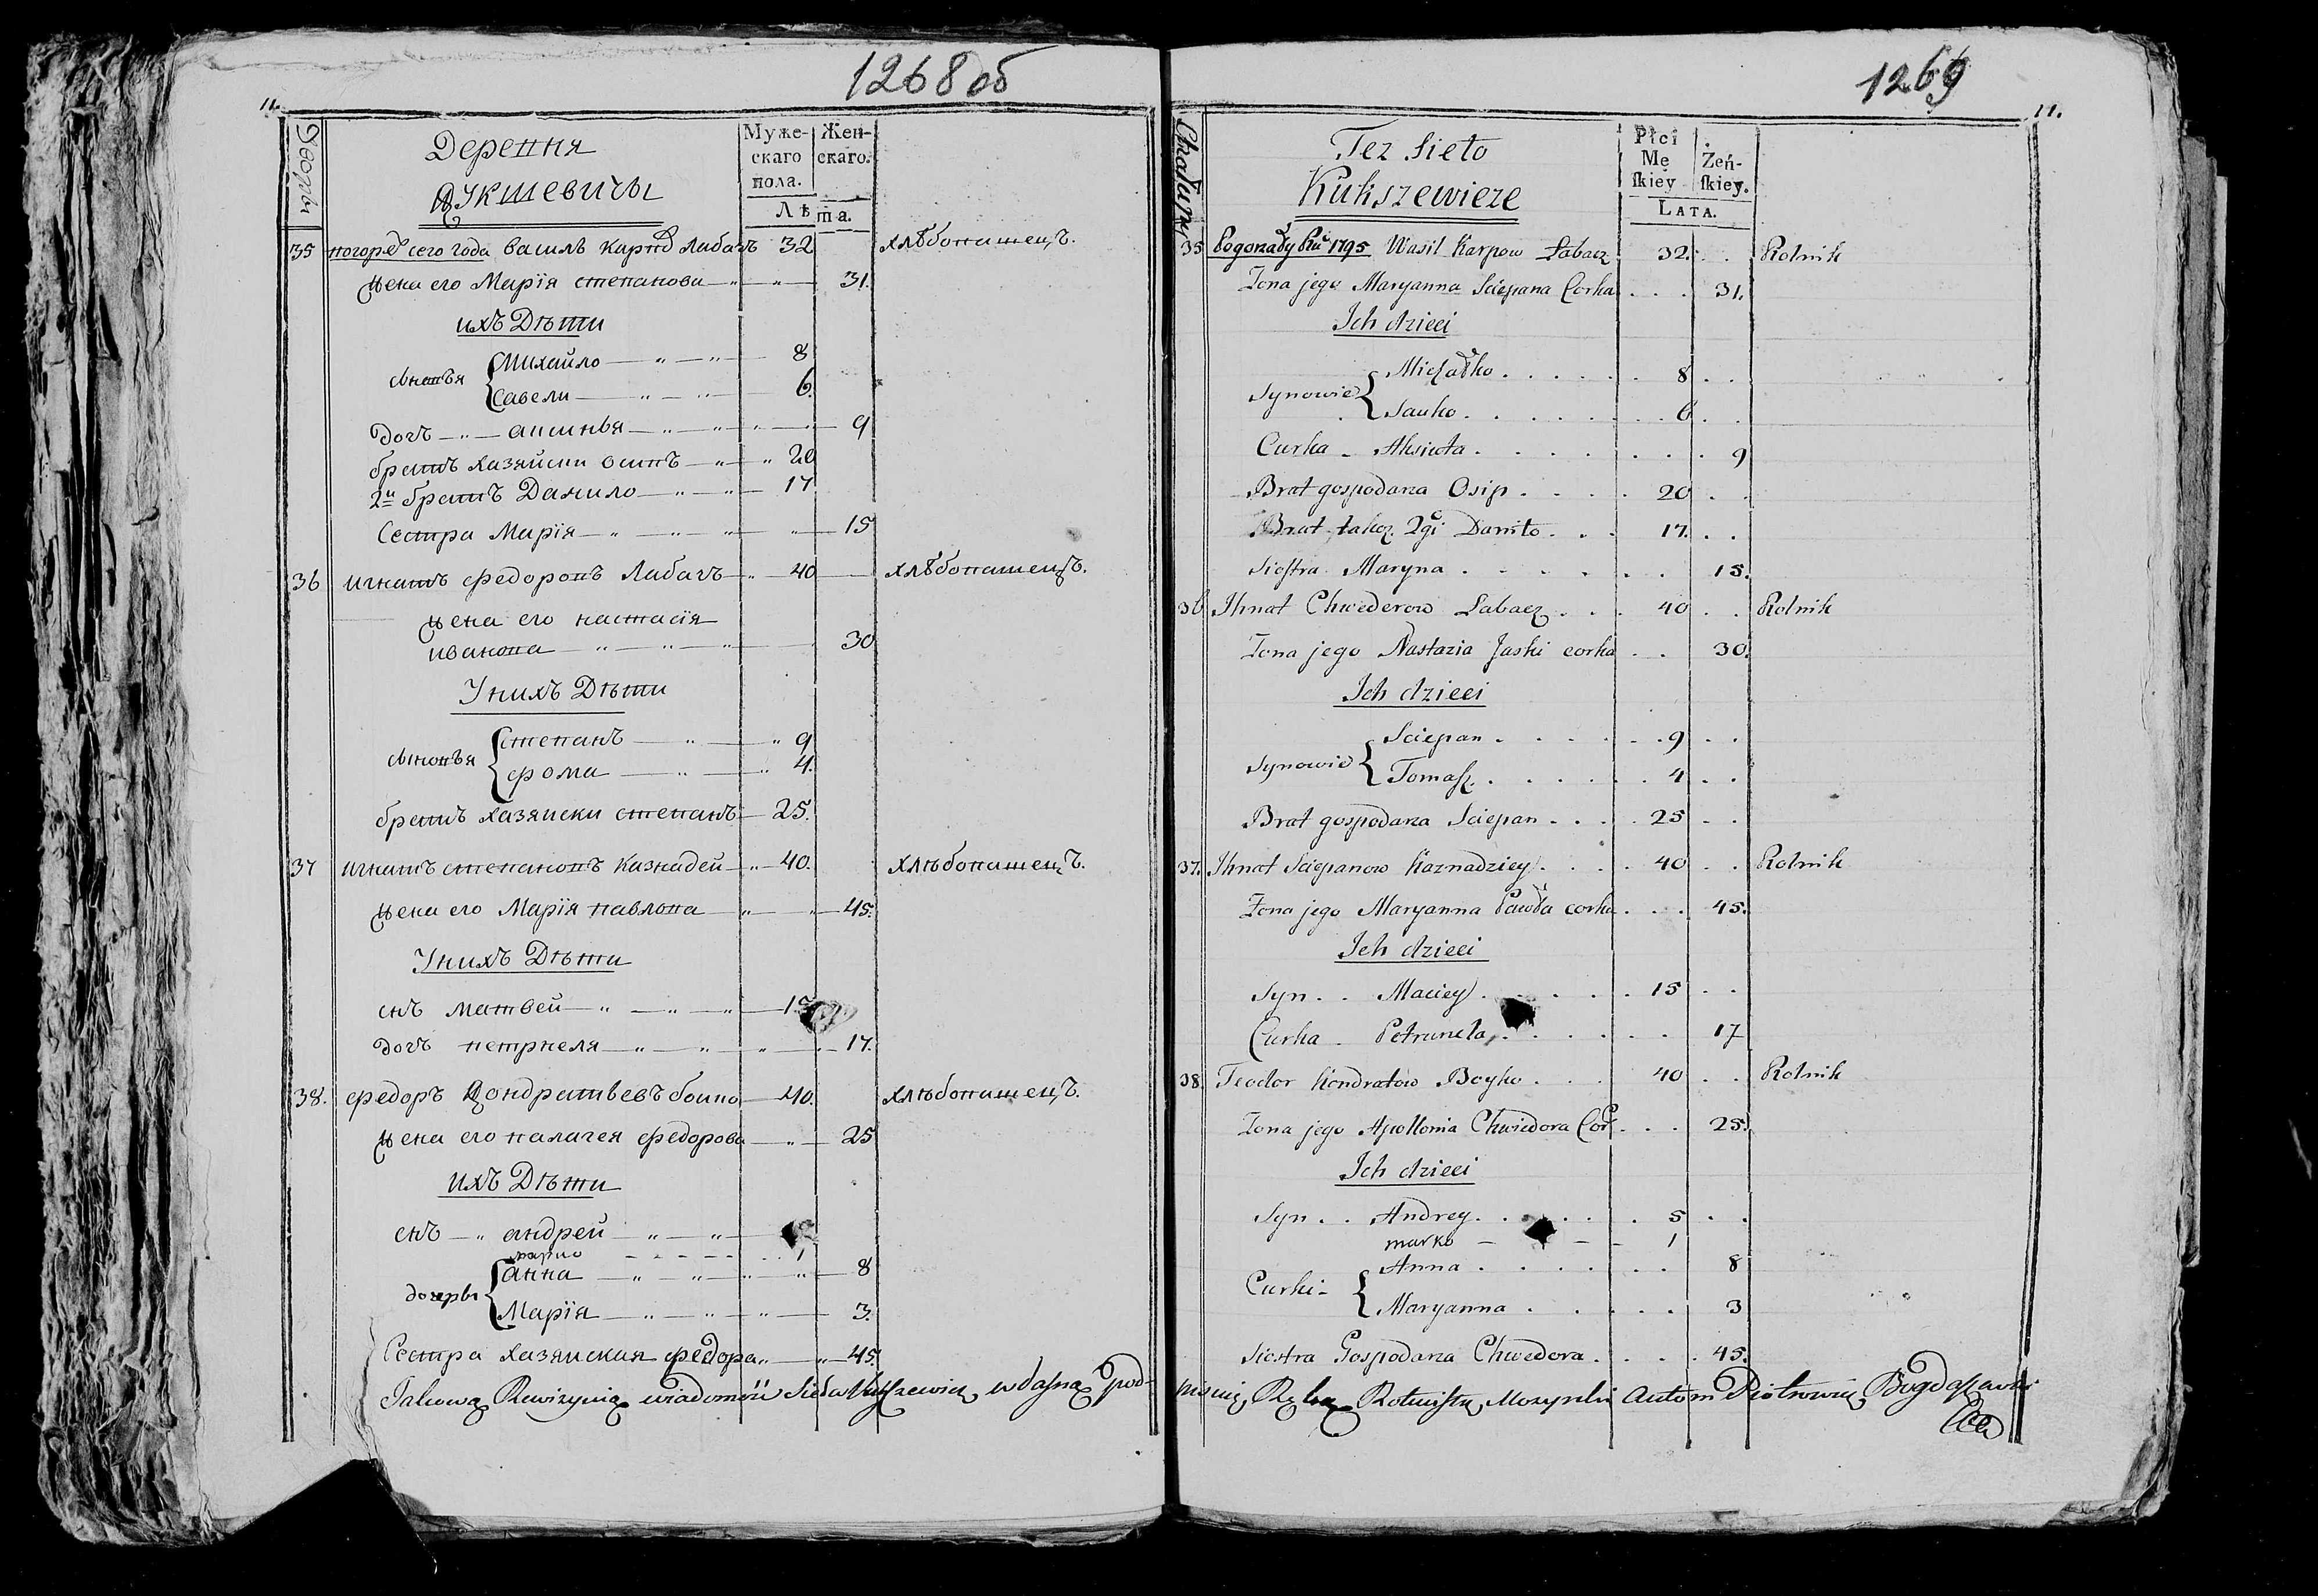 1268 об
11.
Дворы
Деревня
Кукшевичы
Муже-
скаго
пола.
Жен-
скаго.
Лѣта.
35 погорѣ сего года василь карпов лабачъ 32 хлѣбопашецъ.
жена его Марїя степанова 31.
ихъ Дѣти
сыновья Михайло 8
савели 6.
дочь аксинья 9
братъ хазяйски осипъ 20
2й братъ Данило 17
Сестра Марїя 15
36 игнатъ федоровъ Лабачъ 40 хлѣбопашецъ.
жена его настасїя
иванова 30
У нихъ Дѣти
сыновья степанъ 9
фома 4.
братъ хазяиски степанъ 25.
37 игнатъ степановъ казнадей 40. хлѣбопашецъ.
жена его Марїя павлова 45.
У нихъ Дѣти
снъ матвей 15
дочь петрнеля 17.
38. федоръ Кондратьевъ боико 40. хлѣбопашецъ.
жена его палагея федорова 25
ихъ Дѣти
снъ андрей
марко 1
дочеры анна 8
Марїя 3.
Сестра хазяиская федора 45.
Takową Rewizyią wiadomości Sioła Kukszewicz własną pod-
1269
11.
Chałupy
Też Sieło
Kukszewicze
Płci
Mę
skiey
Żeń-
skiey.
LATA.
35 Pogorzały Ru 1795 Wasil Karpow Łabacz 32. Rolnik
Żona jego Maryanna Sciepana Corka 31.
Ich dzieci
Synowie Michałko 8
Sauko 6
Curka Aksiuta 9
Brat gospodarza Osip 20
Brat takoż 2gi Daniło 17.
Siostra Maryna 15.
36 Ihnat Chwederow Łabacz 40 Rolnik
Żona jego Nastazia Jaski corka 30.
Ich dzieci
Synowie Sciepan 9
Tomasz 4
Brat gospodarza Sciepan 25
37. Ihnat Sciepanow Kaznadziey 40 Rolnik
Żona jego Maryanna Pawła corka 45.
Ich dzieci
Syn Maciey 15
Curka Petrunela 17
38 Teodor Kondratow Boyko 40 Rolnik
Żona jego Apollonia Chwiedora Cor 25.
Ich dzieci
Syn Andrey 5
marko 1
Curki Anna 8
Maryanna 3
Siostra Gospodarza Chwedora 45.
pisuię Ręką Rotmistrz Mozyrski Antoni Piotrowicz